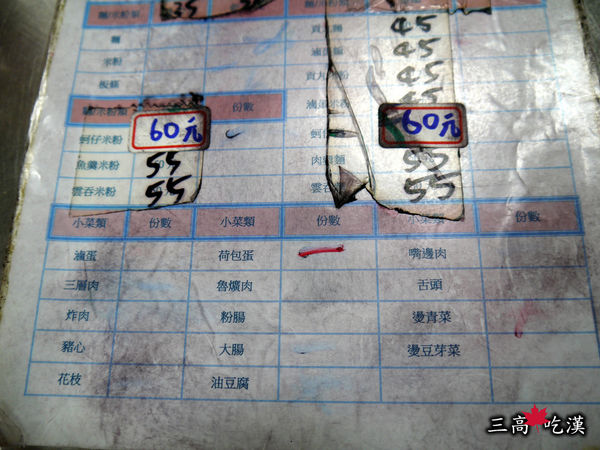 麵
米粉
板條
份數
蚵仔米粉 60元
魚羹米粉 55
雲吞米粉 55
45
45
45
60元
55
55
小菜類 份數 小菜類 份數 小菜類 份數
滷蛋 荷包蛋 嘴邊肉
三層肉 魯爌肉 舌頭
炸肉 粉腸 燙青菜
豬心 大腸 燙豆芽菜
花枝 油豆腐
三高 吃漢